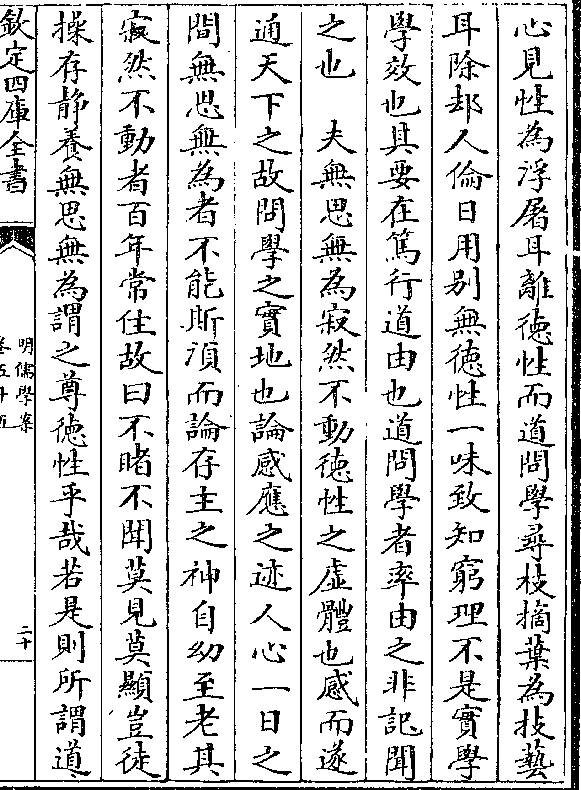 心見性為浮屠耳離徳性而道問學尋枝摘葉為技藝
耳除却人倫日用别無徳性一味致知窮理不是實學
學效也其要在篤行道由也道問學者率由之非記聞
之也　夫無思無為寂然不動徳性之虚體也感而遂
通天下之故問學之實地也論感應之迹人心一日之
間無思無為者不能斯湏而論存主之神自幼至老其
寂然不動者百年常住故曰不睹不聞莫見莫顯豈徒
操存静養無思無為謂之尊徳性乎哉若是則所謂道
欽定四庫全書
明儒學案
卷五十五
二十